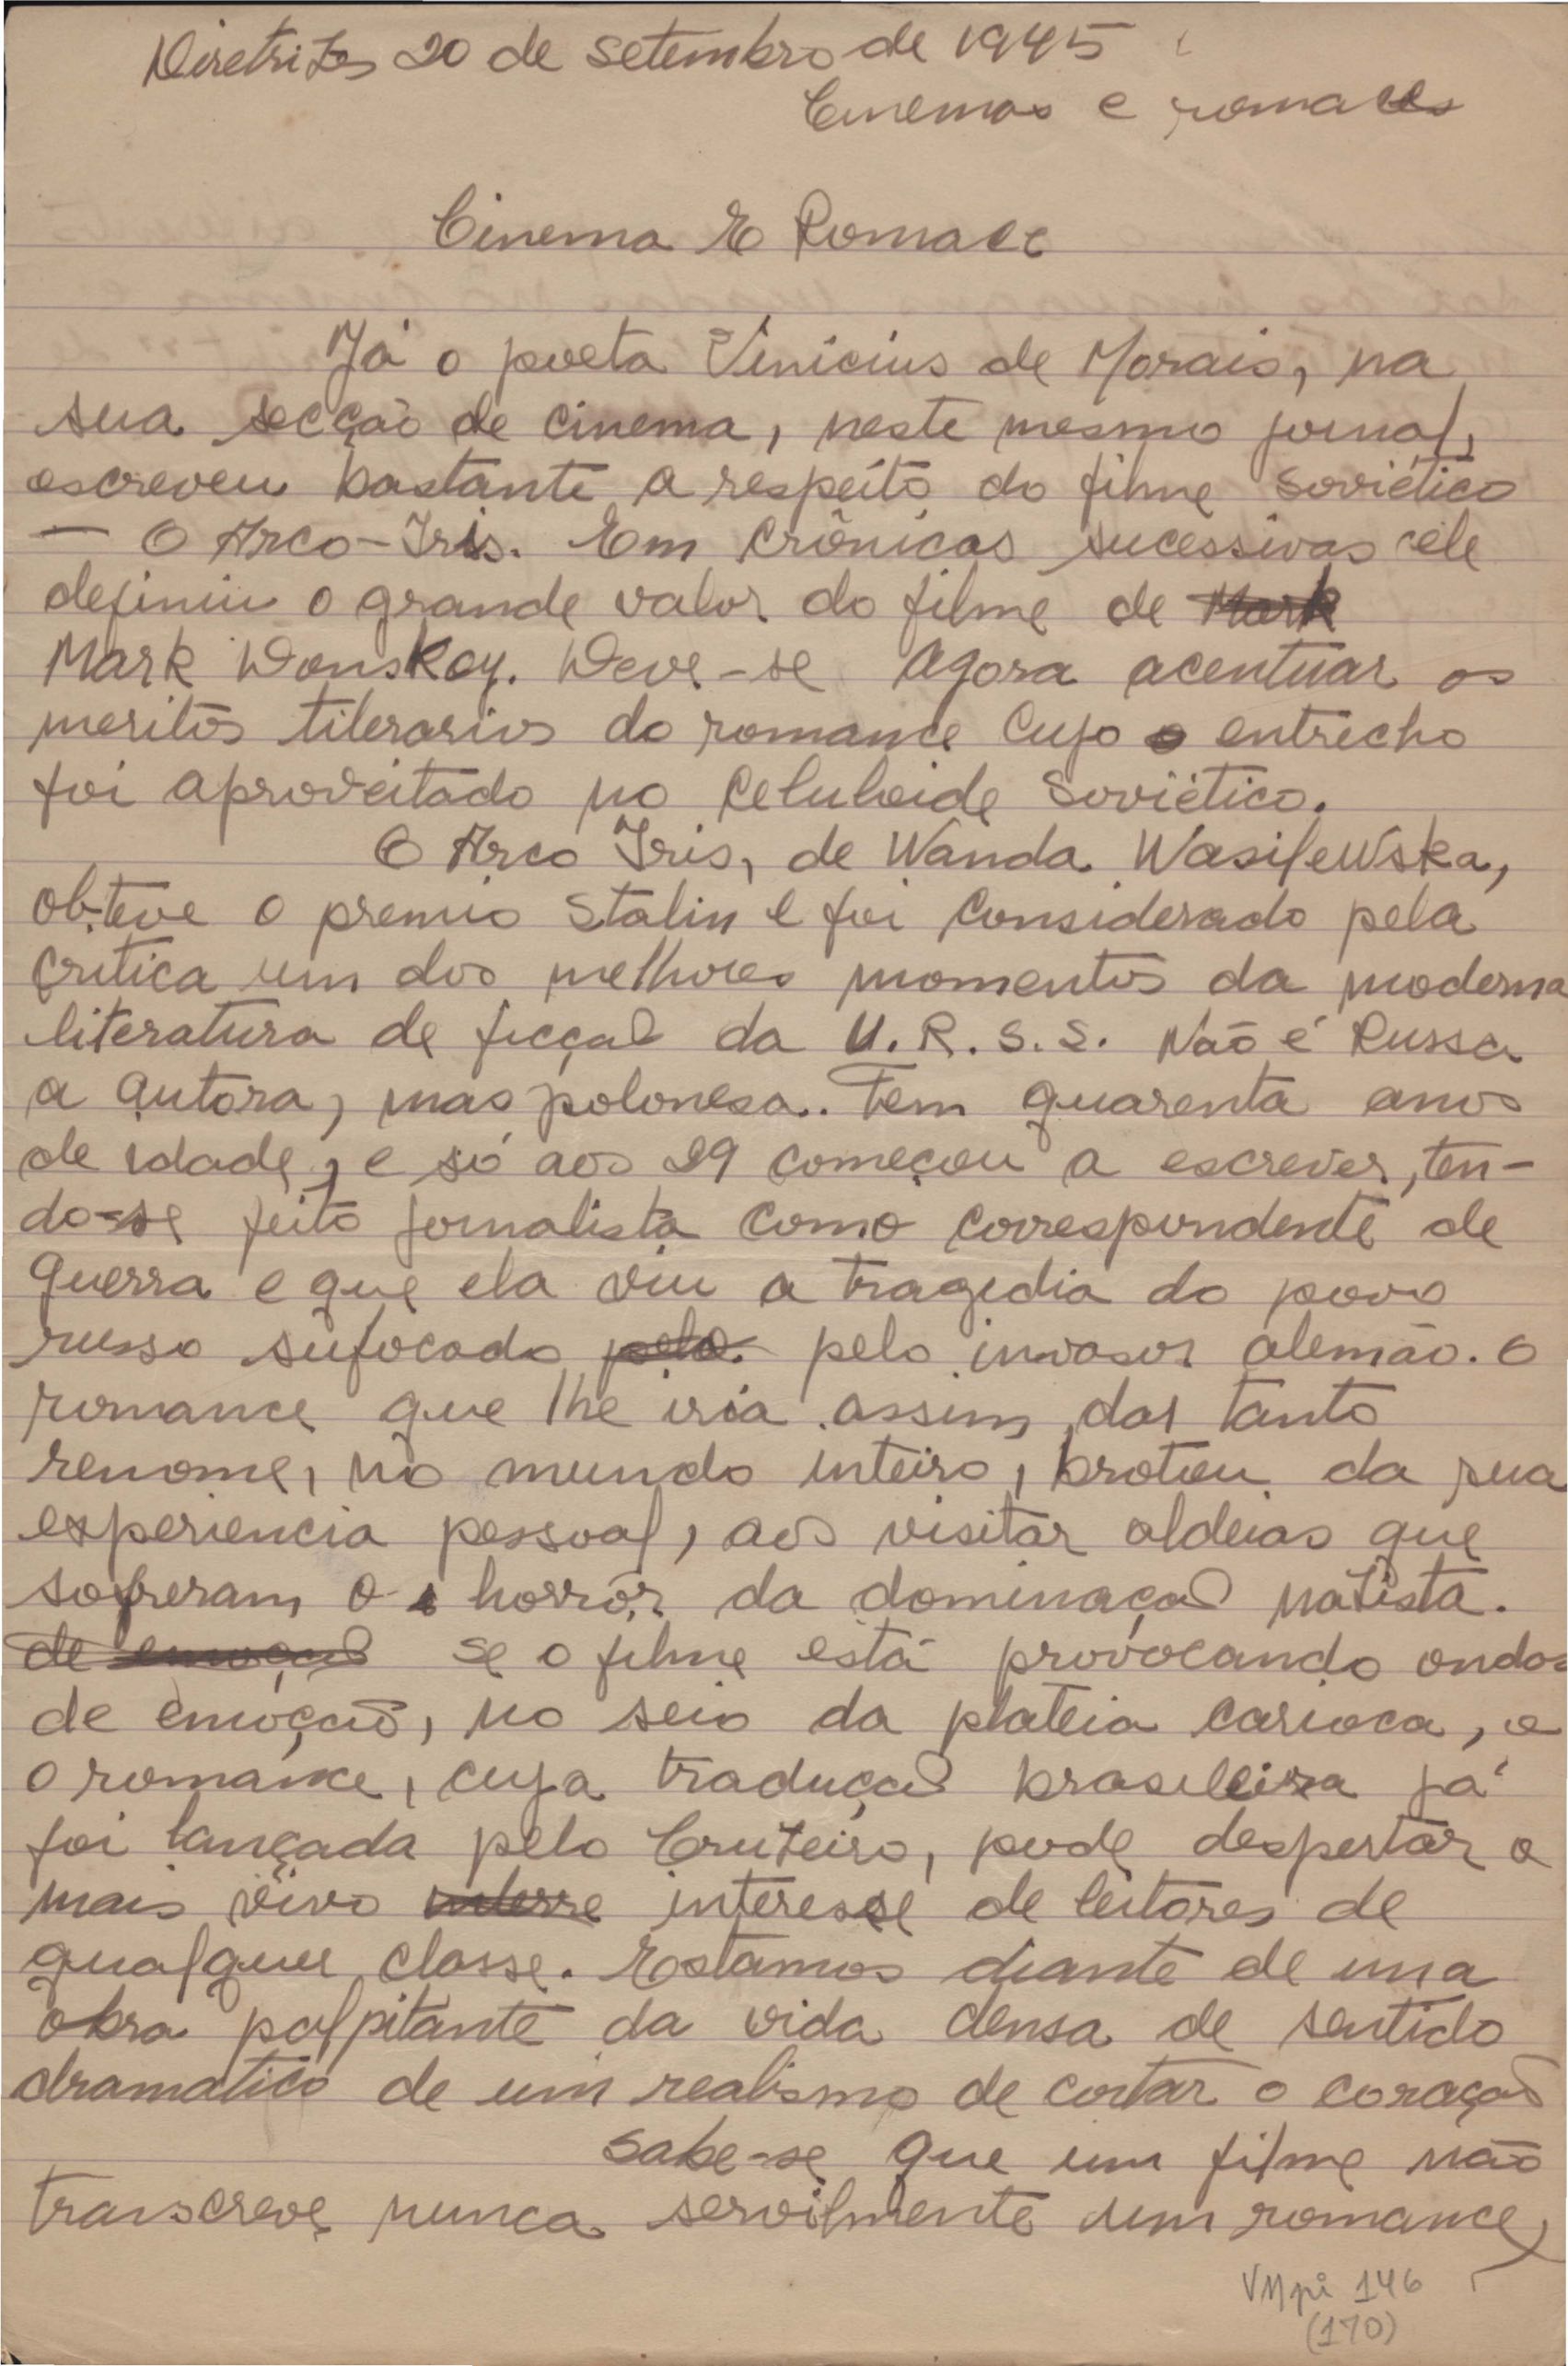 Diretrizes 20 de setembro de 1945
Cinemas e romaces
Cinema E Romace
Já o poeta Vinicius de Morais, na
sua secção de cinema, neste mesmo jornal,
escreveu bastante a respeito do filme soviético
— O Arco-Iris. Em crônicas sucessivas ele
definiu o grande valor do filme de Mark
Mark Donskoy. Deve-se agora acentuar os
meritos literarios do romance cujo o entrecho
foi aproveitado no celuloide soviético.
O Arco Iris, de Wanda Wasilewska,
obteve o premio Stalin e foi considerado pela
critica um dos melhores momentos da moderna
literatura de ficção da U.R.S.S. Não é Russa
a autora, mas polonesa. Tem quarenta anos
de idade, e só aos 29 começou a escrever, ten-
do-se feito jornalista como correspondente de
guerra e que ela viu a tragedia do povo
russo sufocado pelo pelo invasor alemão. O
romance que lhe iria assim dar tanto
renome, no mundo inteiro, brotou da sua
experiencia pessoal, aos visitar aldeias que
sofreram o horrôr da dominação natista.
de emoção se o filme está provocando ondas
de emoção, no seio da plateia carioca, o
o romance, cuja tradução brasileira já
foi lançada pelo Cruzeiro, pode despertar o
mais vivo interre interesse de leitores de
qualquer classe. Estamos diante de uma
obra palpitante da vida densa de sentido
dramatico de um realismo de cortar o coração
Sabe-se que um filme não
transcreve nunca servilmente um romance,
VMpi 146
(170)